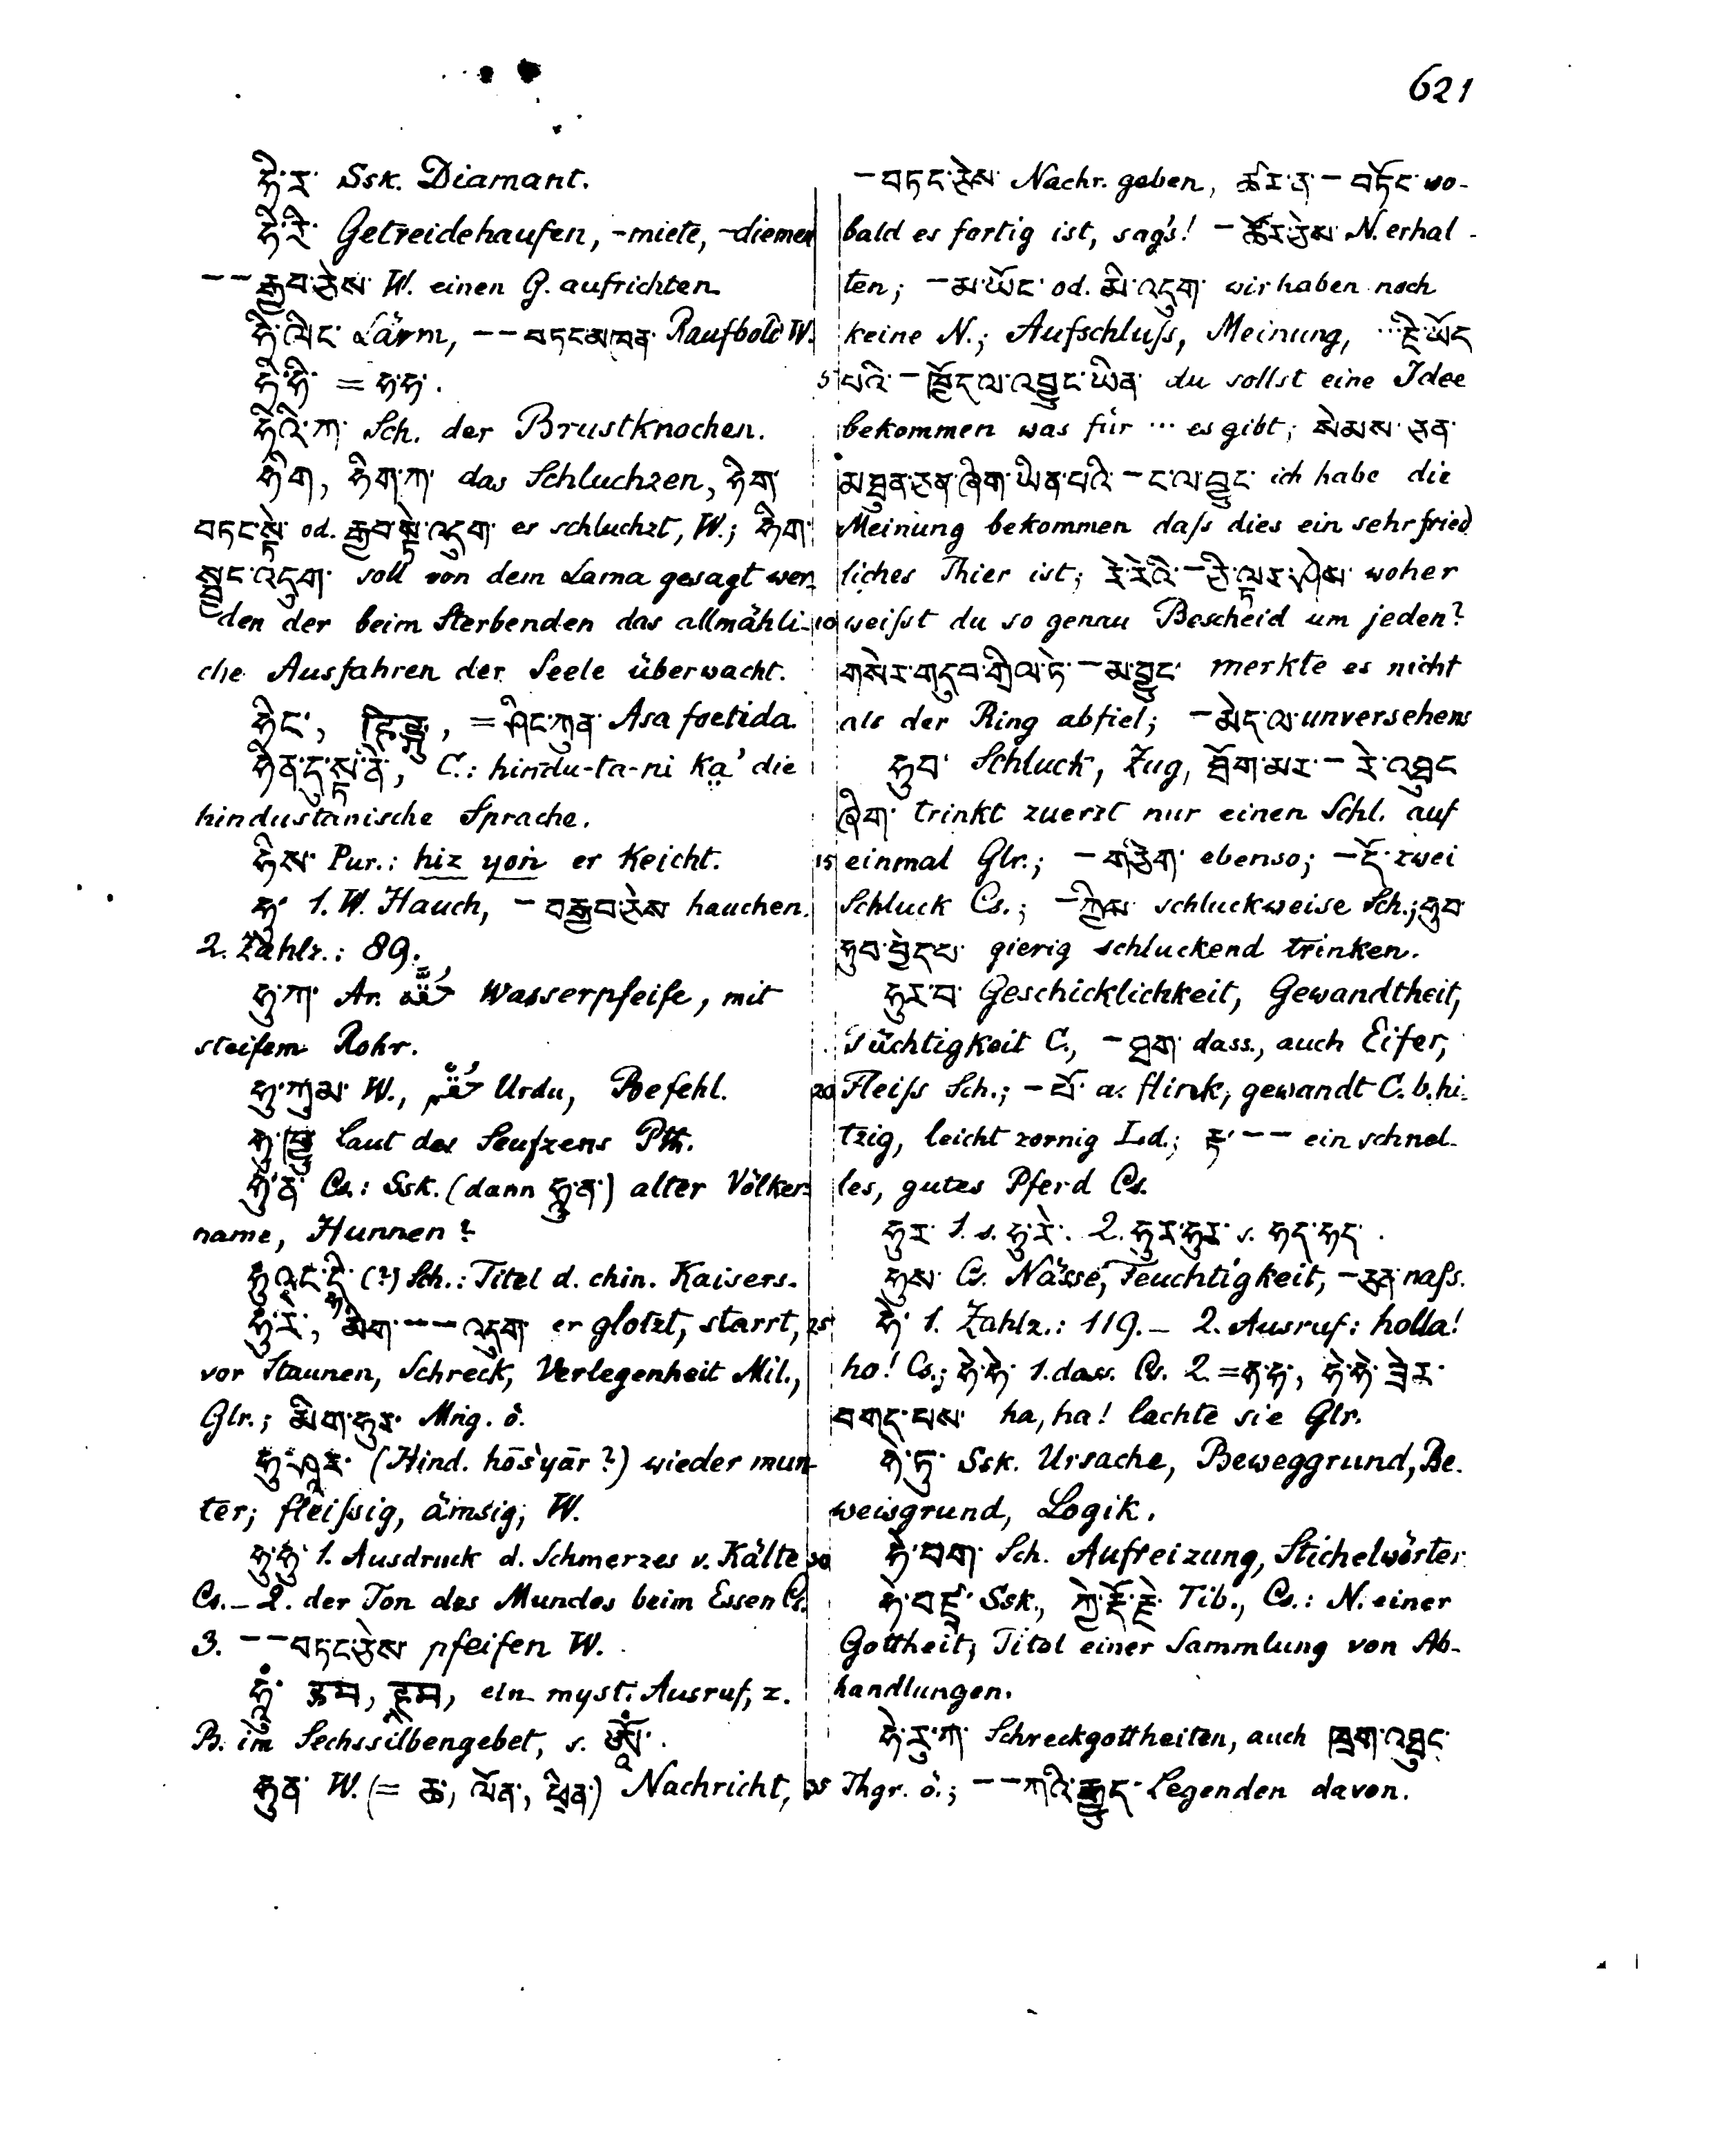 621
ཧི་ར་ Ssk. Diamant.
ཧི་རི་ Getreidehaufen, -miete, -diemen
-- རྒྱབ་ཅེས་ W. einen G. aufrichten
ཧི་ལིང་ Lärm, -- བཏང་མཁན་ Raufbold W.
ཧི་ཧི་ = ཧ་ཧ་.
ཧིའི་ཀ་ Sch. der Brustknochen.
ཧིག, ཧིག་ཀ་ das Schluchzen, ཧིག་
བཏང་སྟེ་ od. རྒྱབ་སྟེ་འདུག་ er schluchzt, W.; ཧིག་
སྤྱང་འདུག་ soll von dem Lama gesagt wer-
den der beim Sterbenden das allmähli-
che Ausfahren der Seele überwacht.
ཧིང་, हिङ्गु, = ཤིང་ཀུན་ Asa foetida.
ཧིན་དུ་སྟ་ནི་, C.: hindu-ta-ni ka' die
hindustanische Sprache.
ཧིས་ Pur.: hiz yoṅ er keicht.
ཧུ་ 1. W. Hauch, - བརྒྱབ་ཅེས་ hauchen.
2. Zahlz.: 89.
ཧུ་ཀ་ Ar. حقّه Wasserpfeife, mit
steifem Rohr.
ཧུ་ཀུམ་ W., حُقم Urdu, Befehl.
ཧུ་ཁྱུ Laut des Seufzens Pth.
ཧུ་ན་ Cs.: Ssk. (dann ཧཱུ་ན་) alter Völker-
name, Hunnen?
ཧུ་ཝང་དི་ (?) Sch.: Titel d. chin. Kaisers.
ཧུ་རེ་, མིག་ -- འདུག་ er glotzt, starrt,
vor Staunen, Schreck, Verlegenheit Mil.,
Glr.; མིག་ཧུར་ Mṅg. ö.
ཧུ་ཤཱར་ (Hind. hōs'yār?) wieder mun-
ter; fleißig, ämsig; W.
ཧུ་ཧུ་ 1. Ausdruck d. Schmerzes v. Kälte
Cs. _ 2. der Ton des Mundes beim Essen Cs.
3. -- བཏང་ཅེས་ pfeifen W.
ཧཱུྃ་ हूम, ein myst. Ausruf, z.
B. im Sechssilbengebet, s. ཨོཾ་.
ཧུན་ W. (= ཆ་, ལོན་, ཕྲིན་) Nachricht,
- བཏང་ཅེས་ Nachr. geben, ཚར་ན་ - བཏོང་ so-
bald es fertig ist, sag's! - ཚོར་ཅེས་ N. erhal-
ten; - མ་ཡོང་ od. མི་འདུག་ wir haben noch
keine N.; Aufschluß, Meinung, ... ཇི་ཡོད་
5 པའི་ - ཁྱོད་ལ་འབྱུང་ཡིན་ du sollst eine Idee
bekommen was für ... es gibt; སེམས་ཅན་
མཐུན་ཅན་ཞིག་ཡིན་པའི་ - ང་ལ་བྱུང་ ich habe die
Meinung bekommen daß dies ein sehr fried-
liches Thier ist; རེ་རེའི་ - ཅི་ལྟར་ཤེས་ woher
10 weißt du so genau Bescheid um jeden?
གསེར་གདུབ་གྲིལ་ཏེ་ - མ་བྱུང་ merkte es nicht
als der Ring abfiel; - མེད་ལ་ unversehens
ཧུབ་ Schluck, Zug, ཐོག་མར་ - རེ་འཐུང་
ཞིག་ trinkt zuerst nur einen Schl. auf
15 einmal Glr.; - གཅིག་ ebenso; - དོ་ zwei
Schluck Cs.; - ཀྱིས་ schluckweise Sch.; ཧུབ་
ཧུབ་བྱེད་པ་ gierig schluckend trinken.
ཧུར་བ་ Geschicklichkeit, Gewandtheit,
Tüchtigkeit C., - ཐག་ dass., auch Eifer,
20 Fleiß Sch.; - པོ་ a. flink, gewandt C. b. hi-
tzig, leicht zornig Ld.; རྟ་ -- ein schnel-
les, gutes Pferd Cs.
ཧུར་ 1. s. ཧུ་རེ་. 2. ཧུར་ཧུར་ s. ཧད་ཧད་.
ཧུས་ Cs. Nässe, Feuchtigkeit, - ཅན་ naß.
25 ཧེ་ 1. Zahlz.: 119. _ 2. Ausruf: holla!
ho! Cs.; ཧེ་ཧེ་ 1. dass. Cs. 2 = ཧ་ཧ་, ཧེ་ཧེ་ཟེར་
བགད་པས་ ha, ha! lachte sie Glr.
ཧེ་ཏུ་ Ssk. Ursache, Beweggrund, Be-
weisgrund, Logik.
30 ཧེ་བག་ Sch. Aufreizung, Stichelwörter
ཧེ་བཛྲ་ Ssk., ཀྱེ་རྡོ་རྗེ་ Tib., Cs.: N. einer
Gottheit; Titel einer Sammlung von Ab-
handlungen.
ཧེ་རུ་ཀ་ Schreckgottheiten, auch ཁྲག་འཐུང་
35 Thgr. ö.; -- ཀའི་རྒྱུད་ Legenden davon.